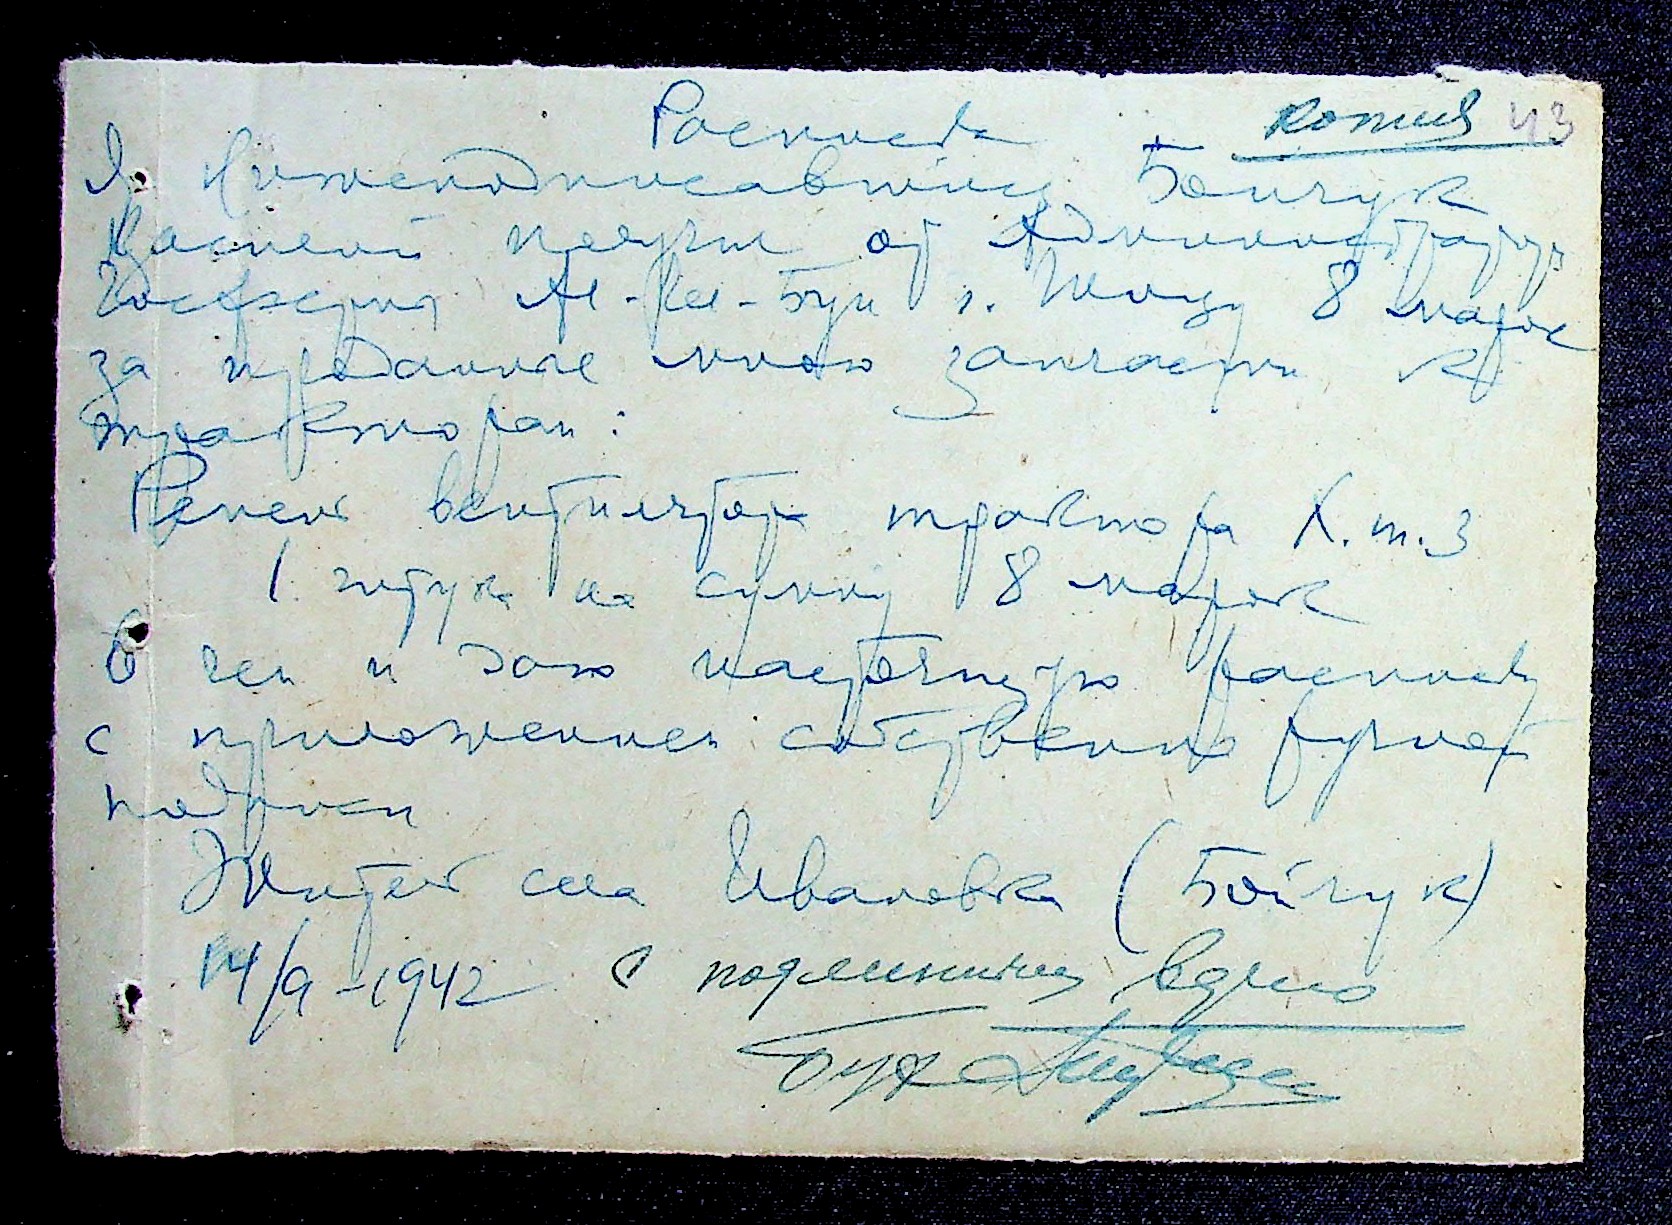 Расписка
копия 43
Я нижеподписавшийся Бойчук
Василий получил от Администратора
Госфермы г. 8 марок
за проданные мною запчасти к
тракторам:
Ремень вентилятора трактора Х.т.З
1 штука на сумму 8 марок
В чем и даю настоящую расписку
с приложением собственно ручной
подписи
Житель села Ивановка (Бойчук)
14/9-1942 с подлинным верно
Бух